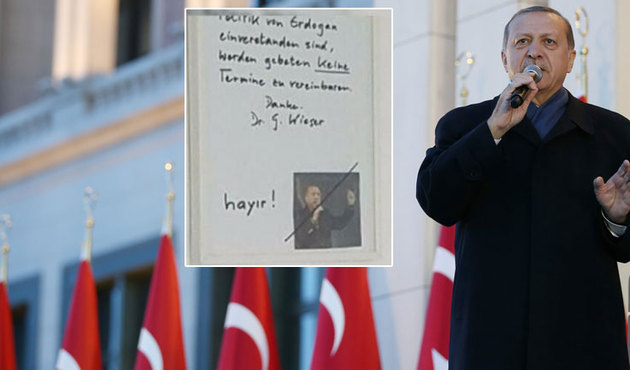 Politik von Erdogan
einverstanden sind,
werden gebeten keine
Termine zu vereinbaren.
Danke.
Dr. G. Wieser
hayır!